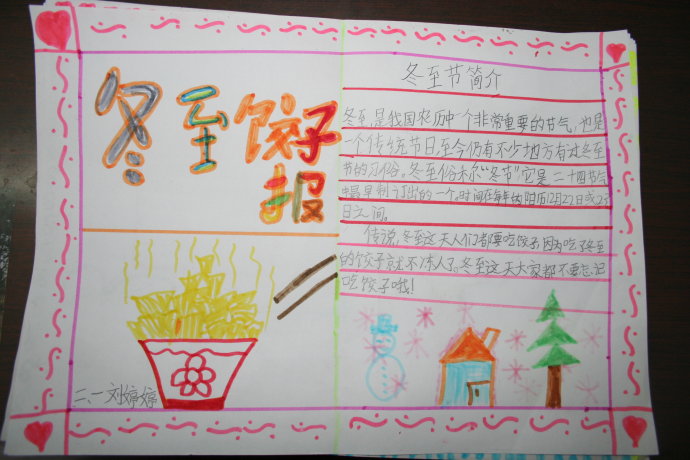 冬至饺子
报
二、一刘婷婷
冬至节简介
冬至是我国农历中一个非常重要的节气,也是
一个传统节日,至今仍有不少地方有过冬至
节的习俗。冬至俗称“冬节”它是二十四节气
中最早制订出的一个。时间在每年的阳历12月22日或23
日之间。
传说,冬至这天人们都要吃饺子,因为吃了冬至
的饺子就不冻人了。冬至这天大家都不要忘记
吃饺子哦!